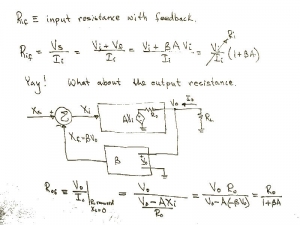 Rif ≡ input resistance with feedback.
Rif = Vs/Ii = Vi + Vf/Ii = Vi + βA Vi/Ii = Vi/Ii (1+βA)
Ri
Yay! What about the output resistance.
Xs + Σ Xi
AXi Ro Vo Io RL
Xf=βVo
β
Rof = Vo/Io | RL removed Xs=0 = Vo / (Vo-AXi / Ro) = Vo Ro / Vo-A(-βVo) = Ro / 1+βA